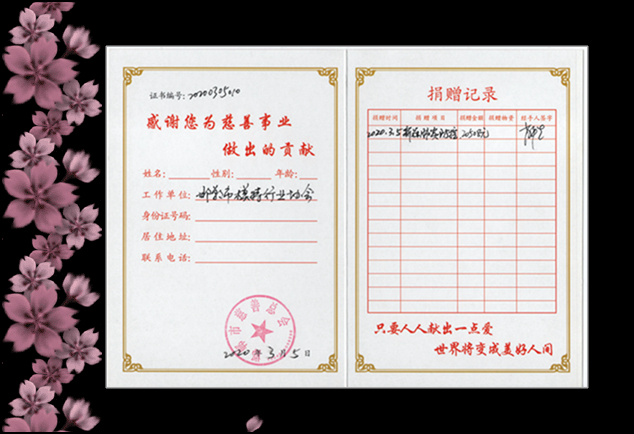 证书编号:20200305010
感谢您为慈善事业
做出的贡献
姓名: 性别: 年龄:
工作单位: 邢台市模特行业协会
身份证号码:
居住地址:
联系电话:
2020年3月5日
捐赠记录
捐赠时间 捐赠项目 捐赠金额 捐赠物资 经手人签字
2020.3.5
只要人人献出一点爱
世界将变成美好人间